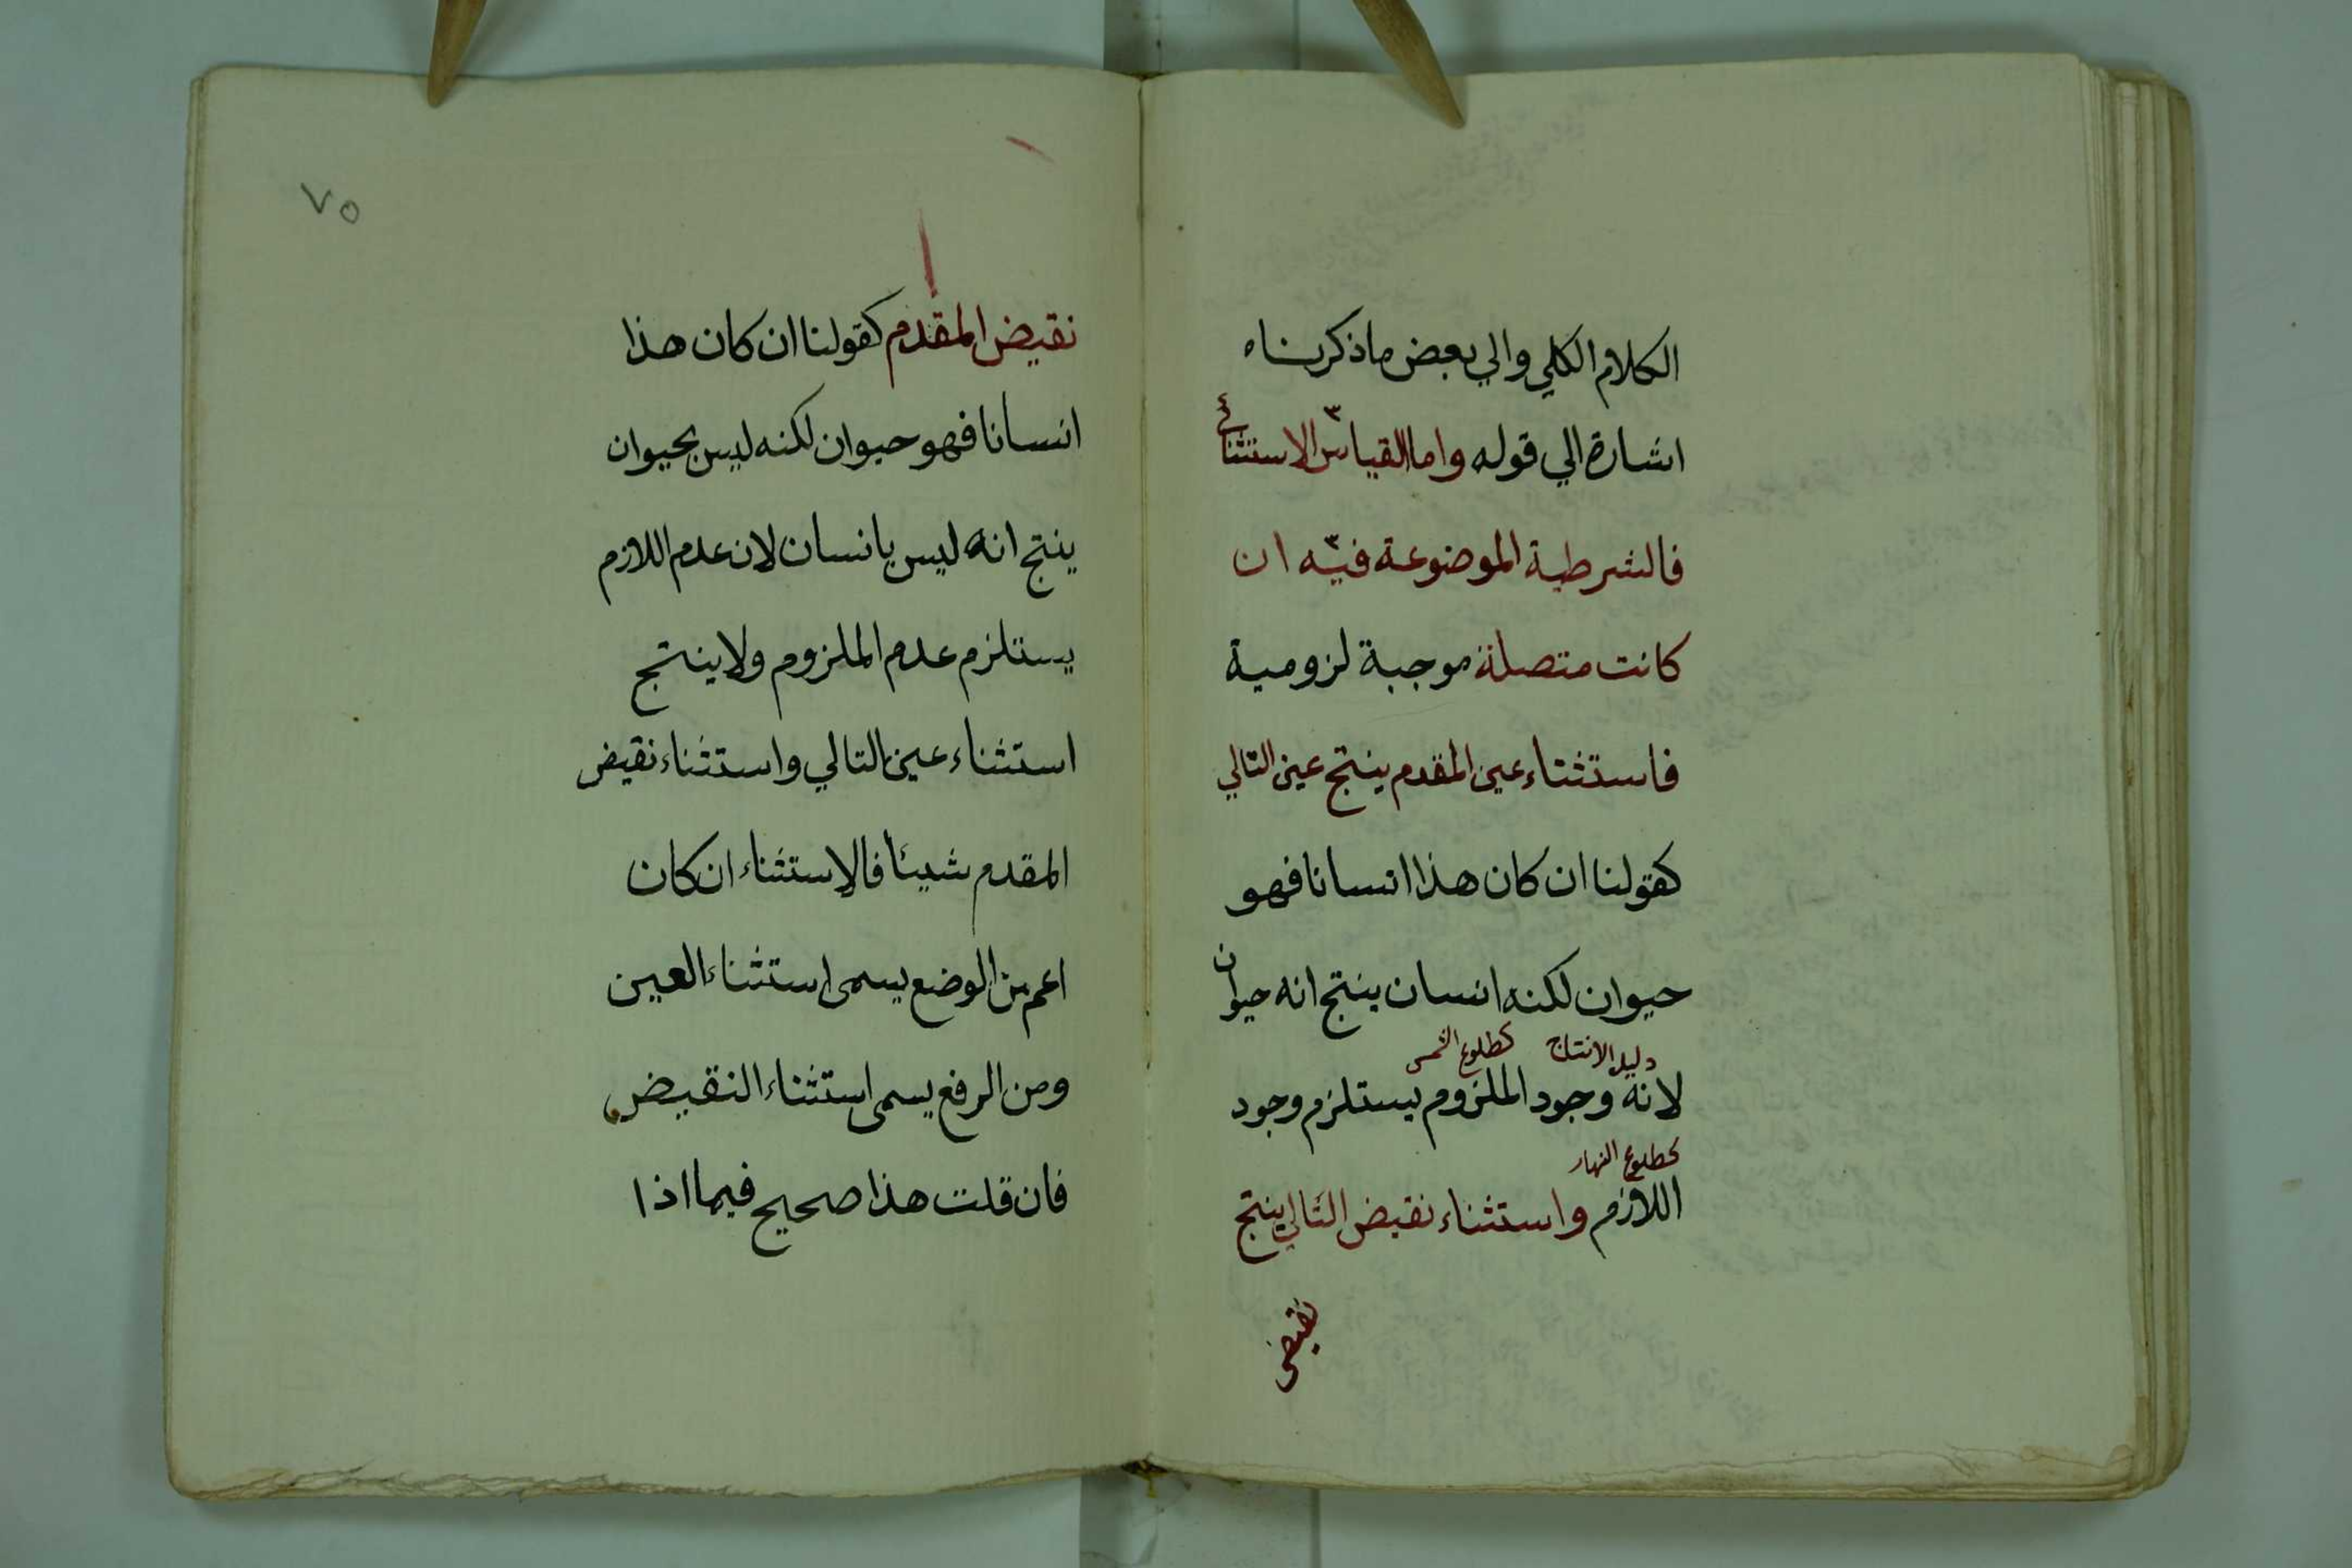 الكلام الكلي والي بعض ما ذكرناه
اشارة الي قوله واما القياس الاستثنائي
فالشرطية الموضوعة فيه ان
كانت متصلة موجبة لزومية
فاستثناء عين المقدم ينتج عين التالي
كقولنا ان كان هذا انسانا فهو
حيوان لكنه انسان ينتج انه حيوان
دليل الانتاج كطلوع الشمس
لانه وجود الملزوم يستلزم وجود
كطلوع النهار
اللازم واستثناء نقيض التالي ينتج
نقيض
٧٥
نقيض المقدم كقولنا ان كان هذا
انسانا فهو حيوان لكنه ليس بحيوان
ينتج انه ليس بانسان لان عدم اللازم
يستلزم عدم الملزوم ولا ينتج
استثناء عين التالي واستثناء نقيض
المقدم شيئا فالاستثناء ان كان
اعم من الوضع يسمى استثناء العين
ومن الرفع يسمى استثناء النقيض
فان قلت هذا صحيح فيما اذا